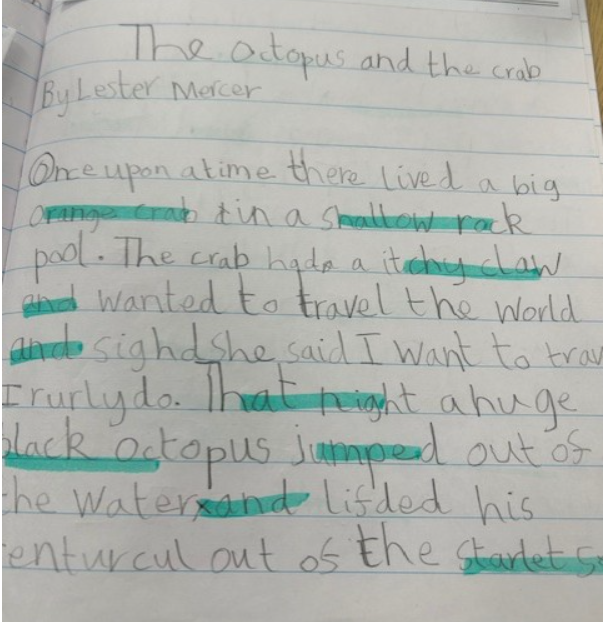 The octopus and the crab
By Lester Mercer
Once upon a time there lived a big
orange crab in a shallow rock
pool. The crab had a itchy claw
and wanted to travel the world
and sighd she said I want to trav
I rurly do. That night a huge
black octopus jumped out of
the water and lifded his
enturcul out of the starlet s